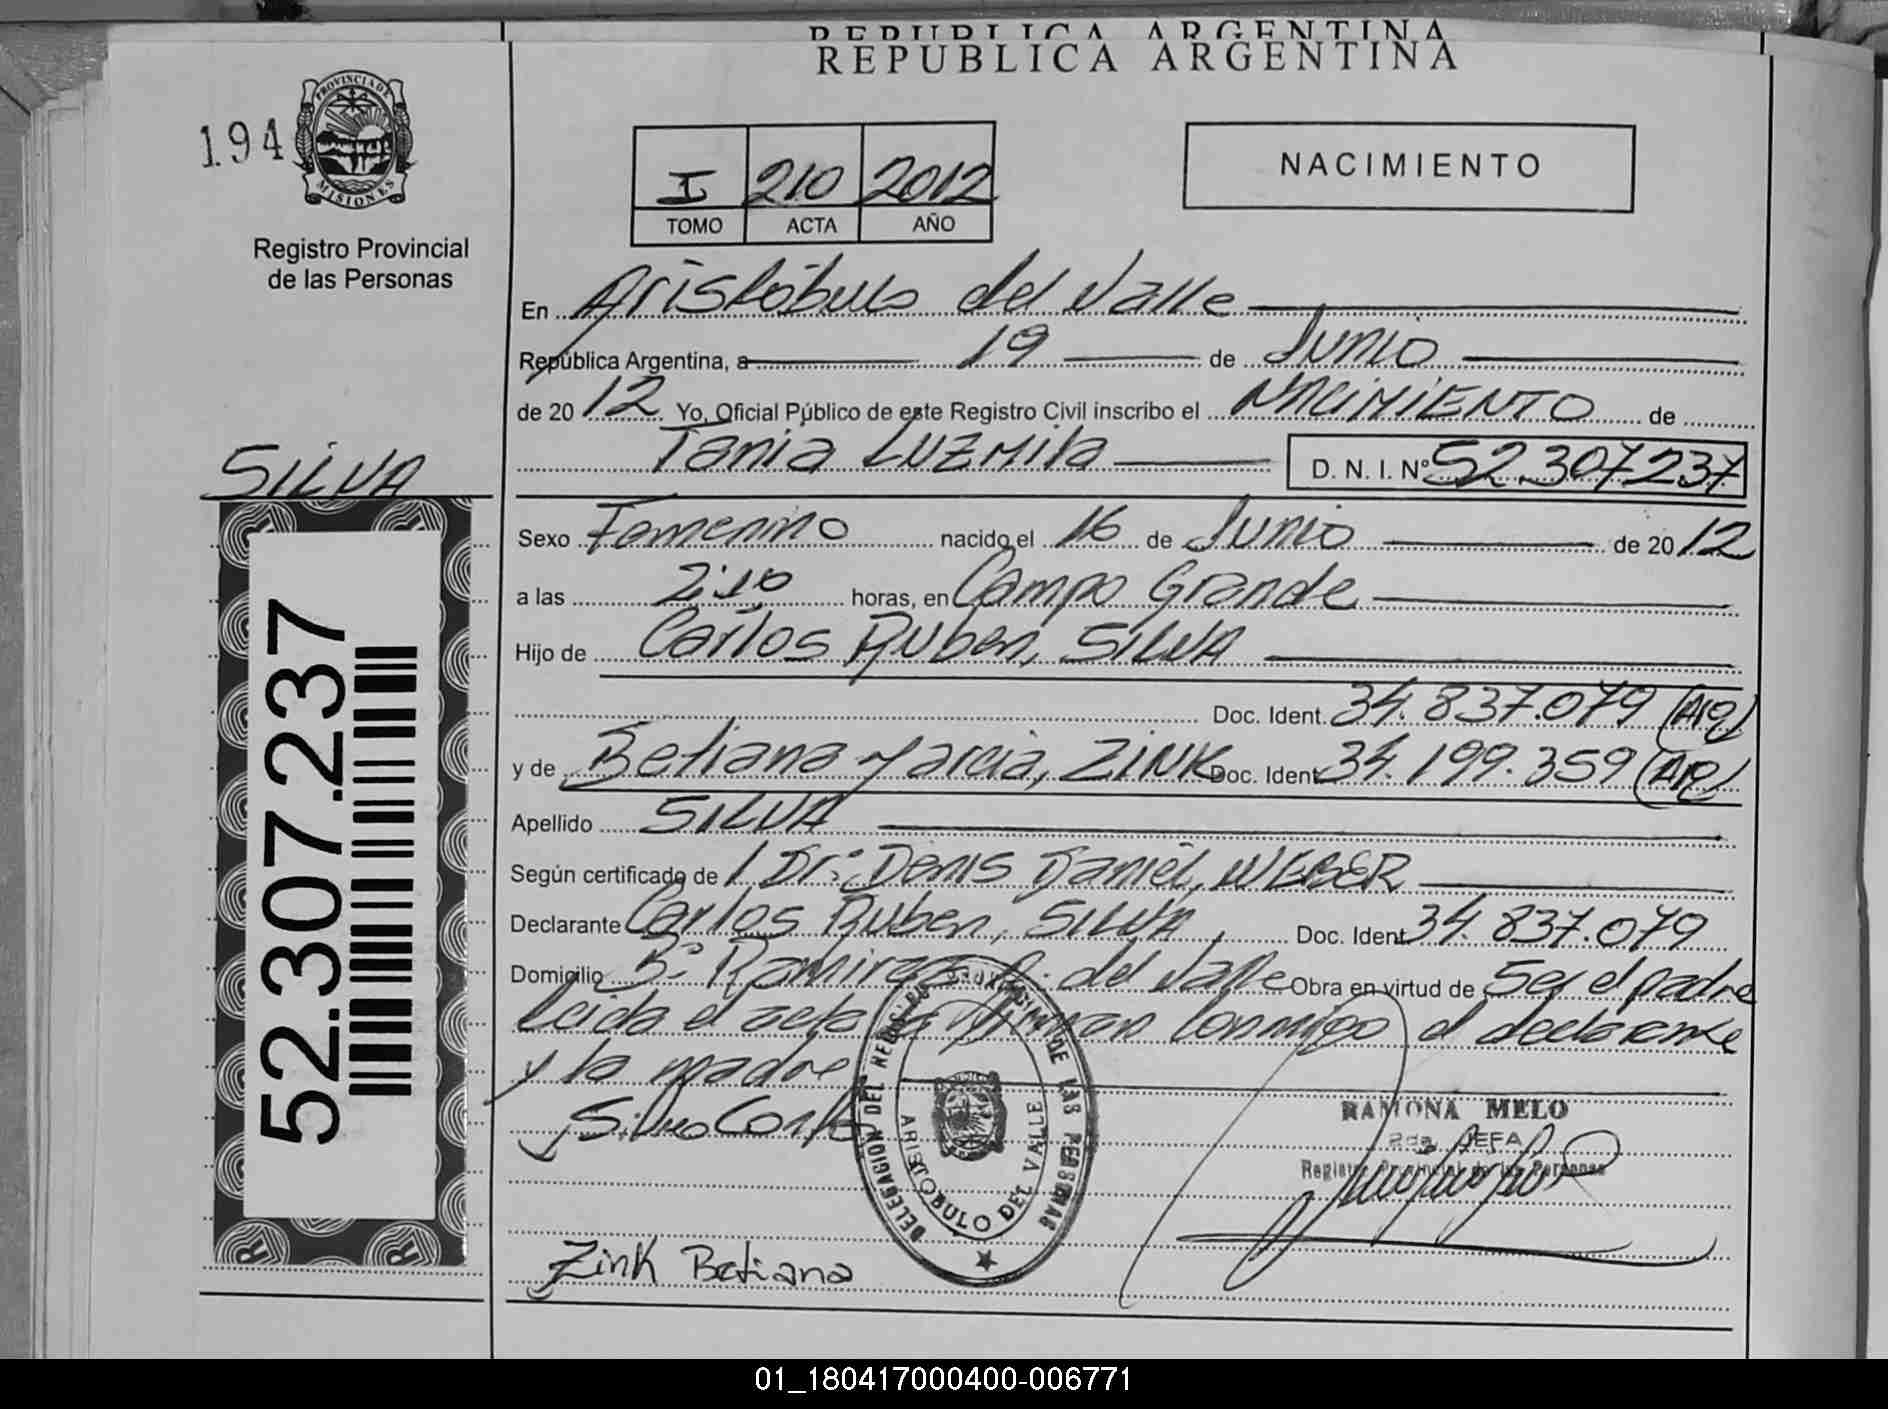 REPUBLICA ARGENTINA
REPUBLICA ARGENTINA
194
PROVINCIA DE
MISIONES
Registro Provincial
de las Personas
I 210 2012
TOMO ACTA AÑO
NACIMIENTO
En Aristóbulo del Valle
República Argentina, a 19 de Junio
de 20 12 Yo, Oficial Público de este Registro Civil inscribo el NACIMIENTO de
Tania LUZMila D. N. I. Nº 52.307.237
SILVA
Sexo Femenino nacido el 16 de Junio de 20 12
a las 2:10 horas, en Campo Grande
Hijo de Carlos Ruben, SILVA
Doc. Ident. 34.837.079 (Arg)
y de Betiana Marcia, ZINK Doc. Ident. 34.199.359 (Arg)
Apellido SILVA
Según certificado de / Dr: Denis Daniel, WEBER
Declarante Carlos Ruben, SILVA, Doc. Ident. 34.837.079
Domicilio Bº Ramirez A. del Valle Obra en virtud de Ser el padre
Leida el acta la firman conmigo el declarante
y la madre
52.307.237
Silva Carlos
DELEGACION DEL REGISTRO PROVINCIAL DE LAS PERSONAS
ARISTOBULO DEL VALLE
RAMONA MELO
2da. JEFA
Registro Provincial de las Personas
Zink Betiana
01_180417000400-006771